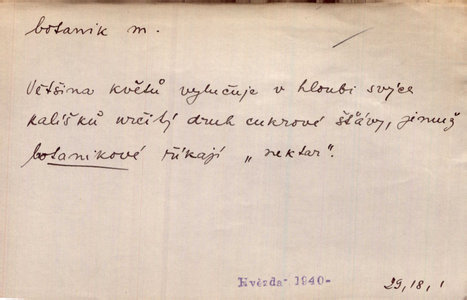 botanik m.
Většina květů vylučuje v hloubi svých
kalíšků určitý druh cukrové šťávy, jemuž
botanikové říkají „nektar".
Hvězda 1940-
29, 18, 1